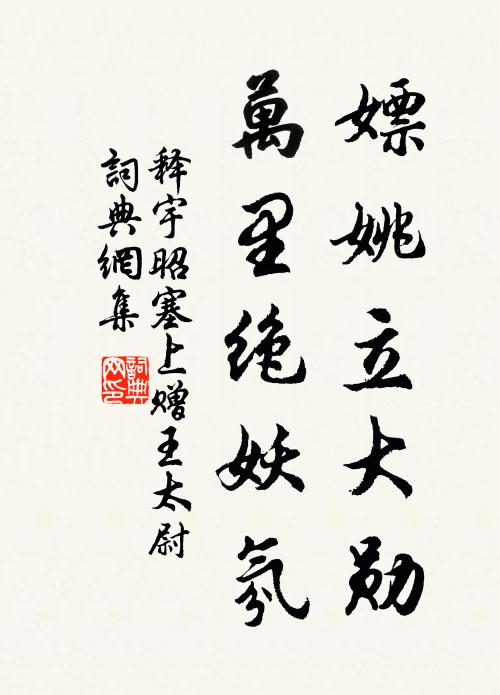 嫖姚立大勋
萬里绝妖氛
释宇昭塞上赠王太尉
詞典網集
詞典网印